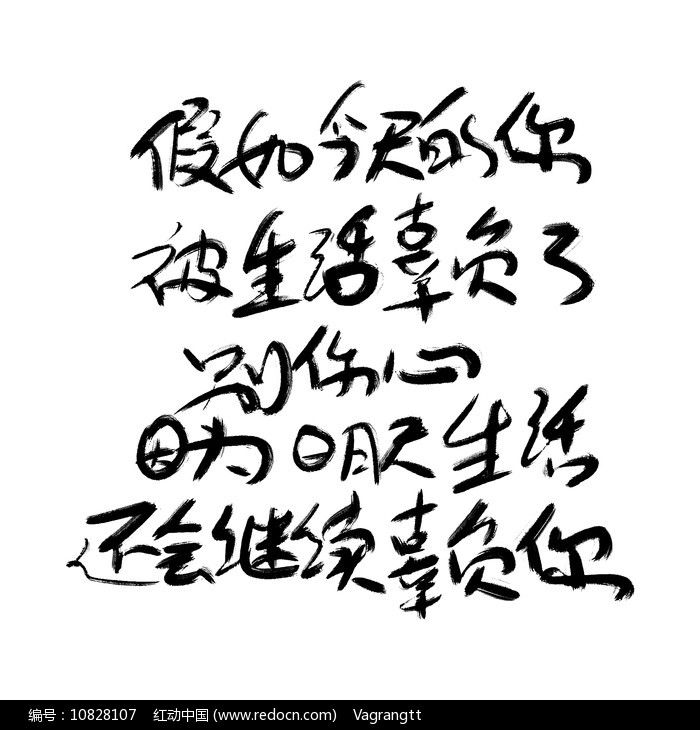 假如今天的你
被生活辜负了
别伤心
因为明天生活
还会继续辜负你
编号：10828107 红动中国 (www.redocn.com) Vagrangtt